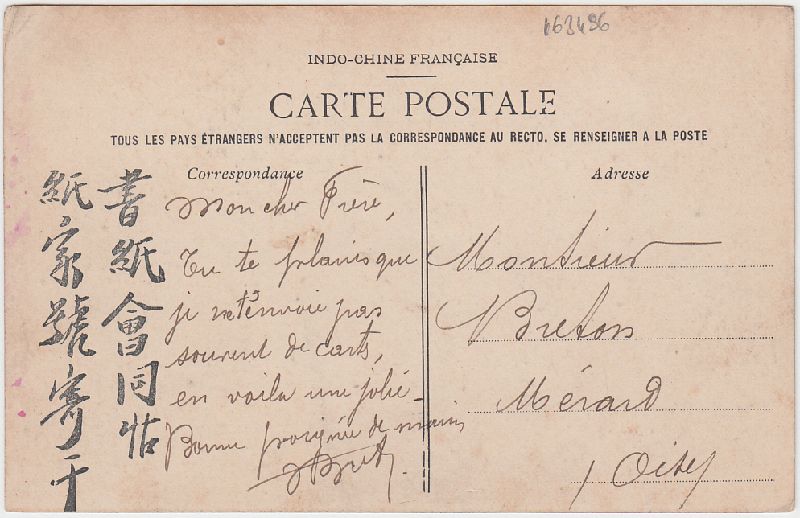 163496
INDO-CHINE FRANÇAISE
CARTE POSTALE
TOUS LES PAYS ÉTRANGERS N'ACCEPTENT PAS LA CORRESPONDANCE AU RECTO, SE RENSEIGNER A LA POSTE
Correspondance
Mon cher Frère,
Tu te plains que
je ne t'envoie pas
souvent de carts,
en voila une jolie
Bonne poignée de mains
Adresse
Monsieur
Breton
Mérard
Oise
書紙會同
紙家號寄